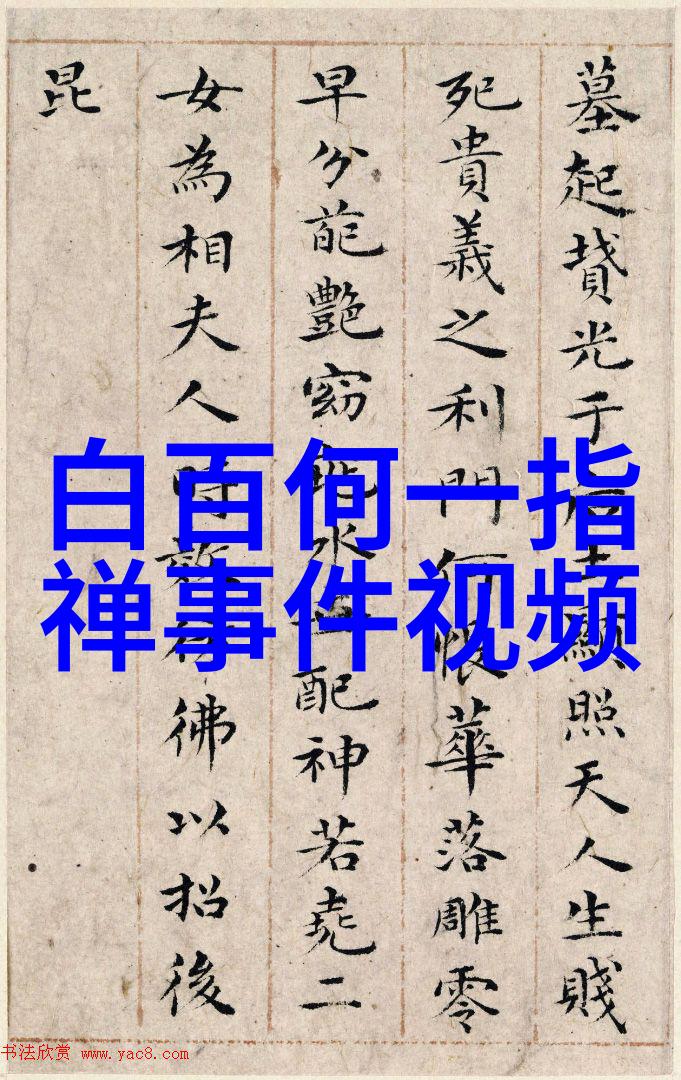 墓起光于顯照天人生賤
死貴義之利門何恨華落雕零
早分葩艷窈配神若堯二
女為相夫人時彿以招後
昆
白百何一指
禅事件视频
书法欣赏 www.yac8.com